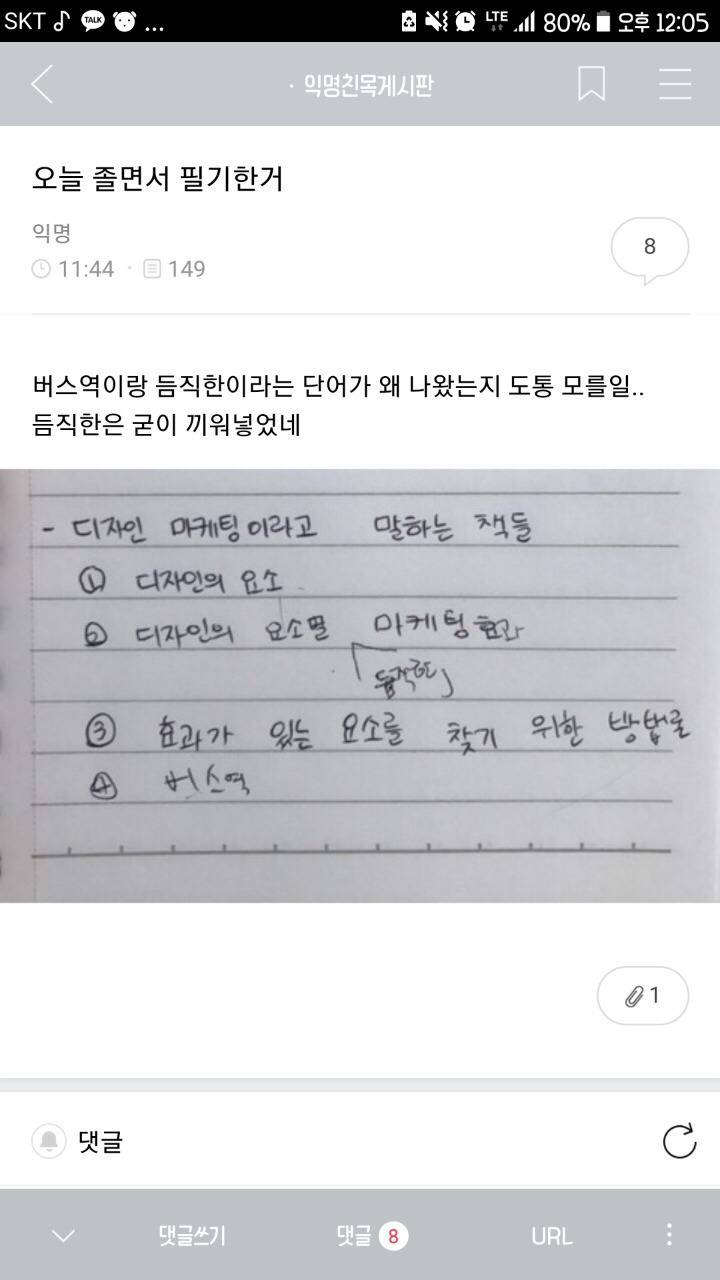 SKT TALK ... LTE 80% 오후 12:05
· 익명친목게시판
오늘 졸면서 필기한거
익명
11:44 · 149
8
버스역이랑 듬직한이라는 단어가 왜 나왔는지 도통 모를일..
듬직한은 굳이 끼워넣었네
- 디자인 마케팅이라고 말하는 책들
① 디자인의 요소
② 디자인의 요소별 마케팅 효과
듬직한
③ 효과가 있는 요소를 찾기 위한 방법론
④ 버스역
1
댓글
댓글쓰기 댓글 8 URL